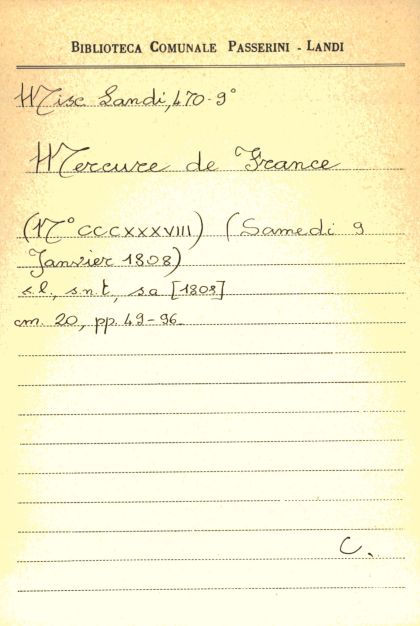 BIBLIOTECA COMUNALE PASSERINI - LANDI
Misc Landi, 470-9°
Mercure de France
(N° CCCXXXVIII) (Samedi 9
Janvier 1808)
s.l., s.n.t, s.a [1808]
cm. 20, pp. 49-96.
C.